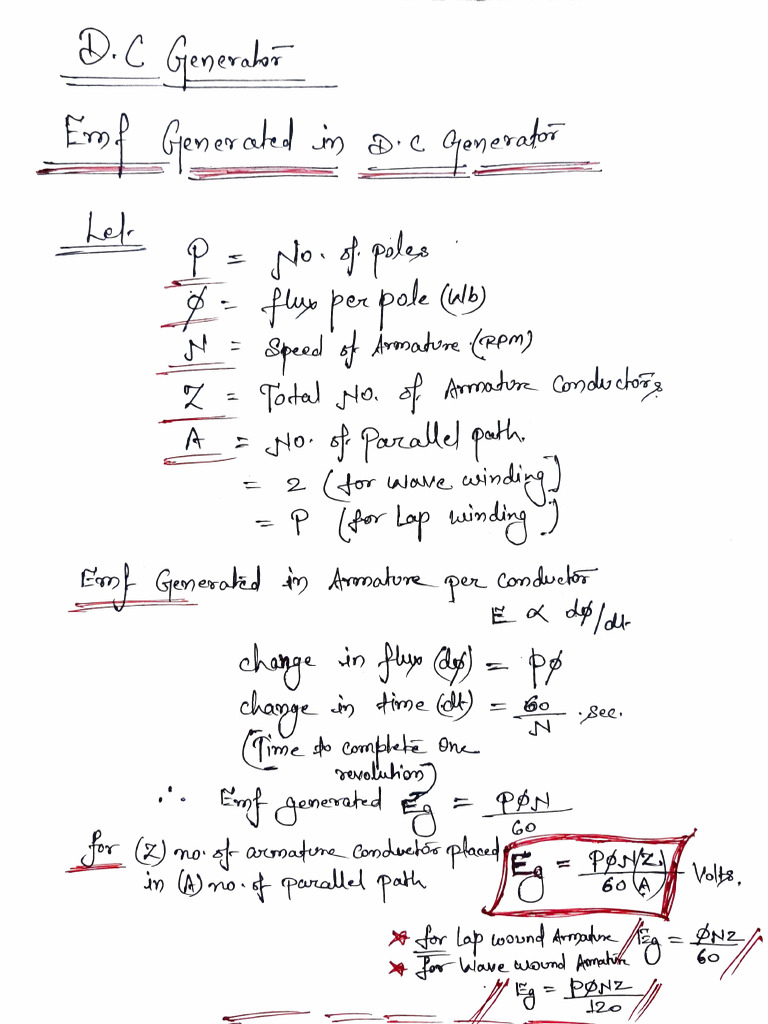 D.C Generator
Emf Generated in D.C Generator
Let.
P = No. of poles
φ = flux per pole (Wb)
N = Speed of Armature (RPM)
Z = Total No. of Armature Conductors
A = No. of Parallel path.
= 2 (for wave winding)
= P (for Lap winding)
Emf Generated in Armature per conductor
E ∝ dφ/dt
change in flux (dφ) = Pφ
change in time (dt) = 60/N .sec.
(Time to complete one
revolution)
∴ Emf generated Eg = PφN/60
for (Z) no. of armature conductor placed
in (A) no. of parallel path
Eg = PφN(Z)/60(A) Volts.
* for Lap wound Armature Eg = φNZ/60
* for Wave wound Armature
Eg = PφNZ/120